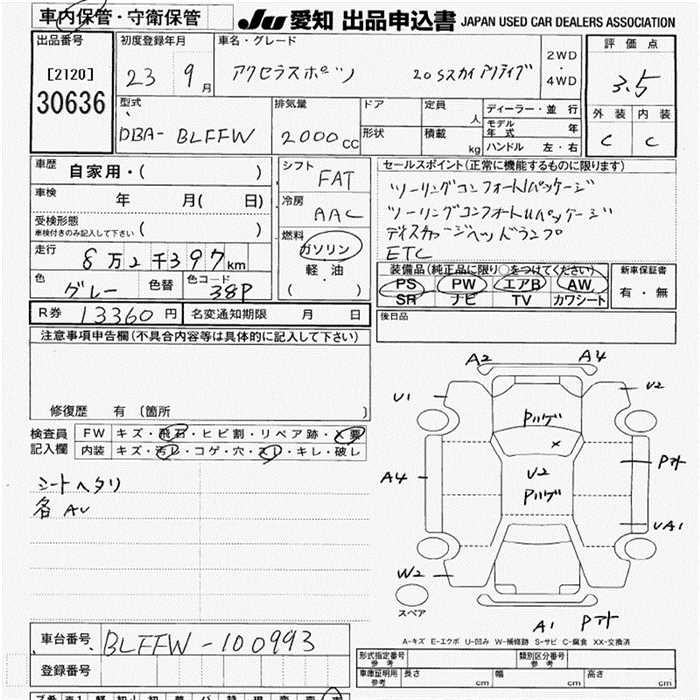 車内保管・守衛保管
JU 愛知 出品申込書 JAPAN USED CAR DEALERS ASSOCIATION
出品番号
[2120]
30636
初度登録年月
23 9月
車名・グレード
アクセラスポーツ 20Sスカイアクティブ
2WD
・
4WD
評価点
3.5
外装 内装
C C
型式
DBA- BLFFW
排気量
2000cc
ドア
形状
定員 人
積載 kg
ディーラー・並行
モデル年式 年
ハンドル 左・右
車歴 自家用・( )
車検 年 月( 日)
受検形態
車検付きのみ記入して下さい ( )
走行 8万2千397km
色 グレー 色替 色コード 38P
シフト FAT
冷房 AAC
燃料
ガソリン
軽油
( )
セールスポイント(正常に機能するものに限ります)
ツーリングコンフォートIパッケージ
ツーリングコンフォートIIパッケージ
ディスチャージヘッドランプ
ETC
装備品(純正品に限り○をつけてください)
PS PW エアB AW
SR ナビ TV カワシート
新車保証書
有・無
後日品
R券 13360円 名変通知期限 月 日
注意事項申告欄(不具合内容等は具体的に記入して下さい)
修復歴 有 〔箇所 〕
検査員記入欄
FW キズ・飛石・ヒビ割・リペア跡・X要
内装 キズ・汚レ・コゲ・穴・スレ・キレ・破レ
シートヘタリ
各AU
A2 A4
U1 U2
Pハゲ
×
A4 U2 Pアト
Pハゲ
UA1
W2
スペア
A1 Pアト
A-キズ E-エクボ U-凹み W-補修跡 S-サビ C-腐食 XX-交換済
車台番号 BLFFW-100993
登録番号
形式指定番号 参考 類別区分番号 参考
車庫証明用 参考 長さ cm 幅 cm 高さ cm